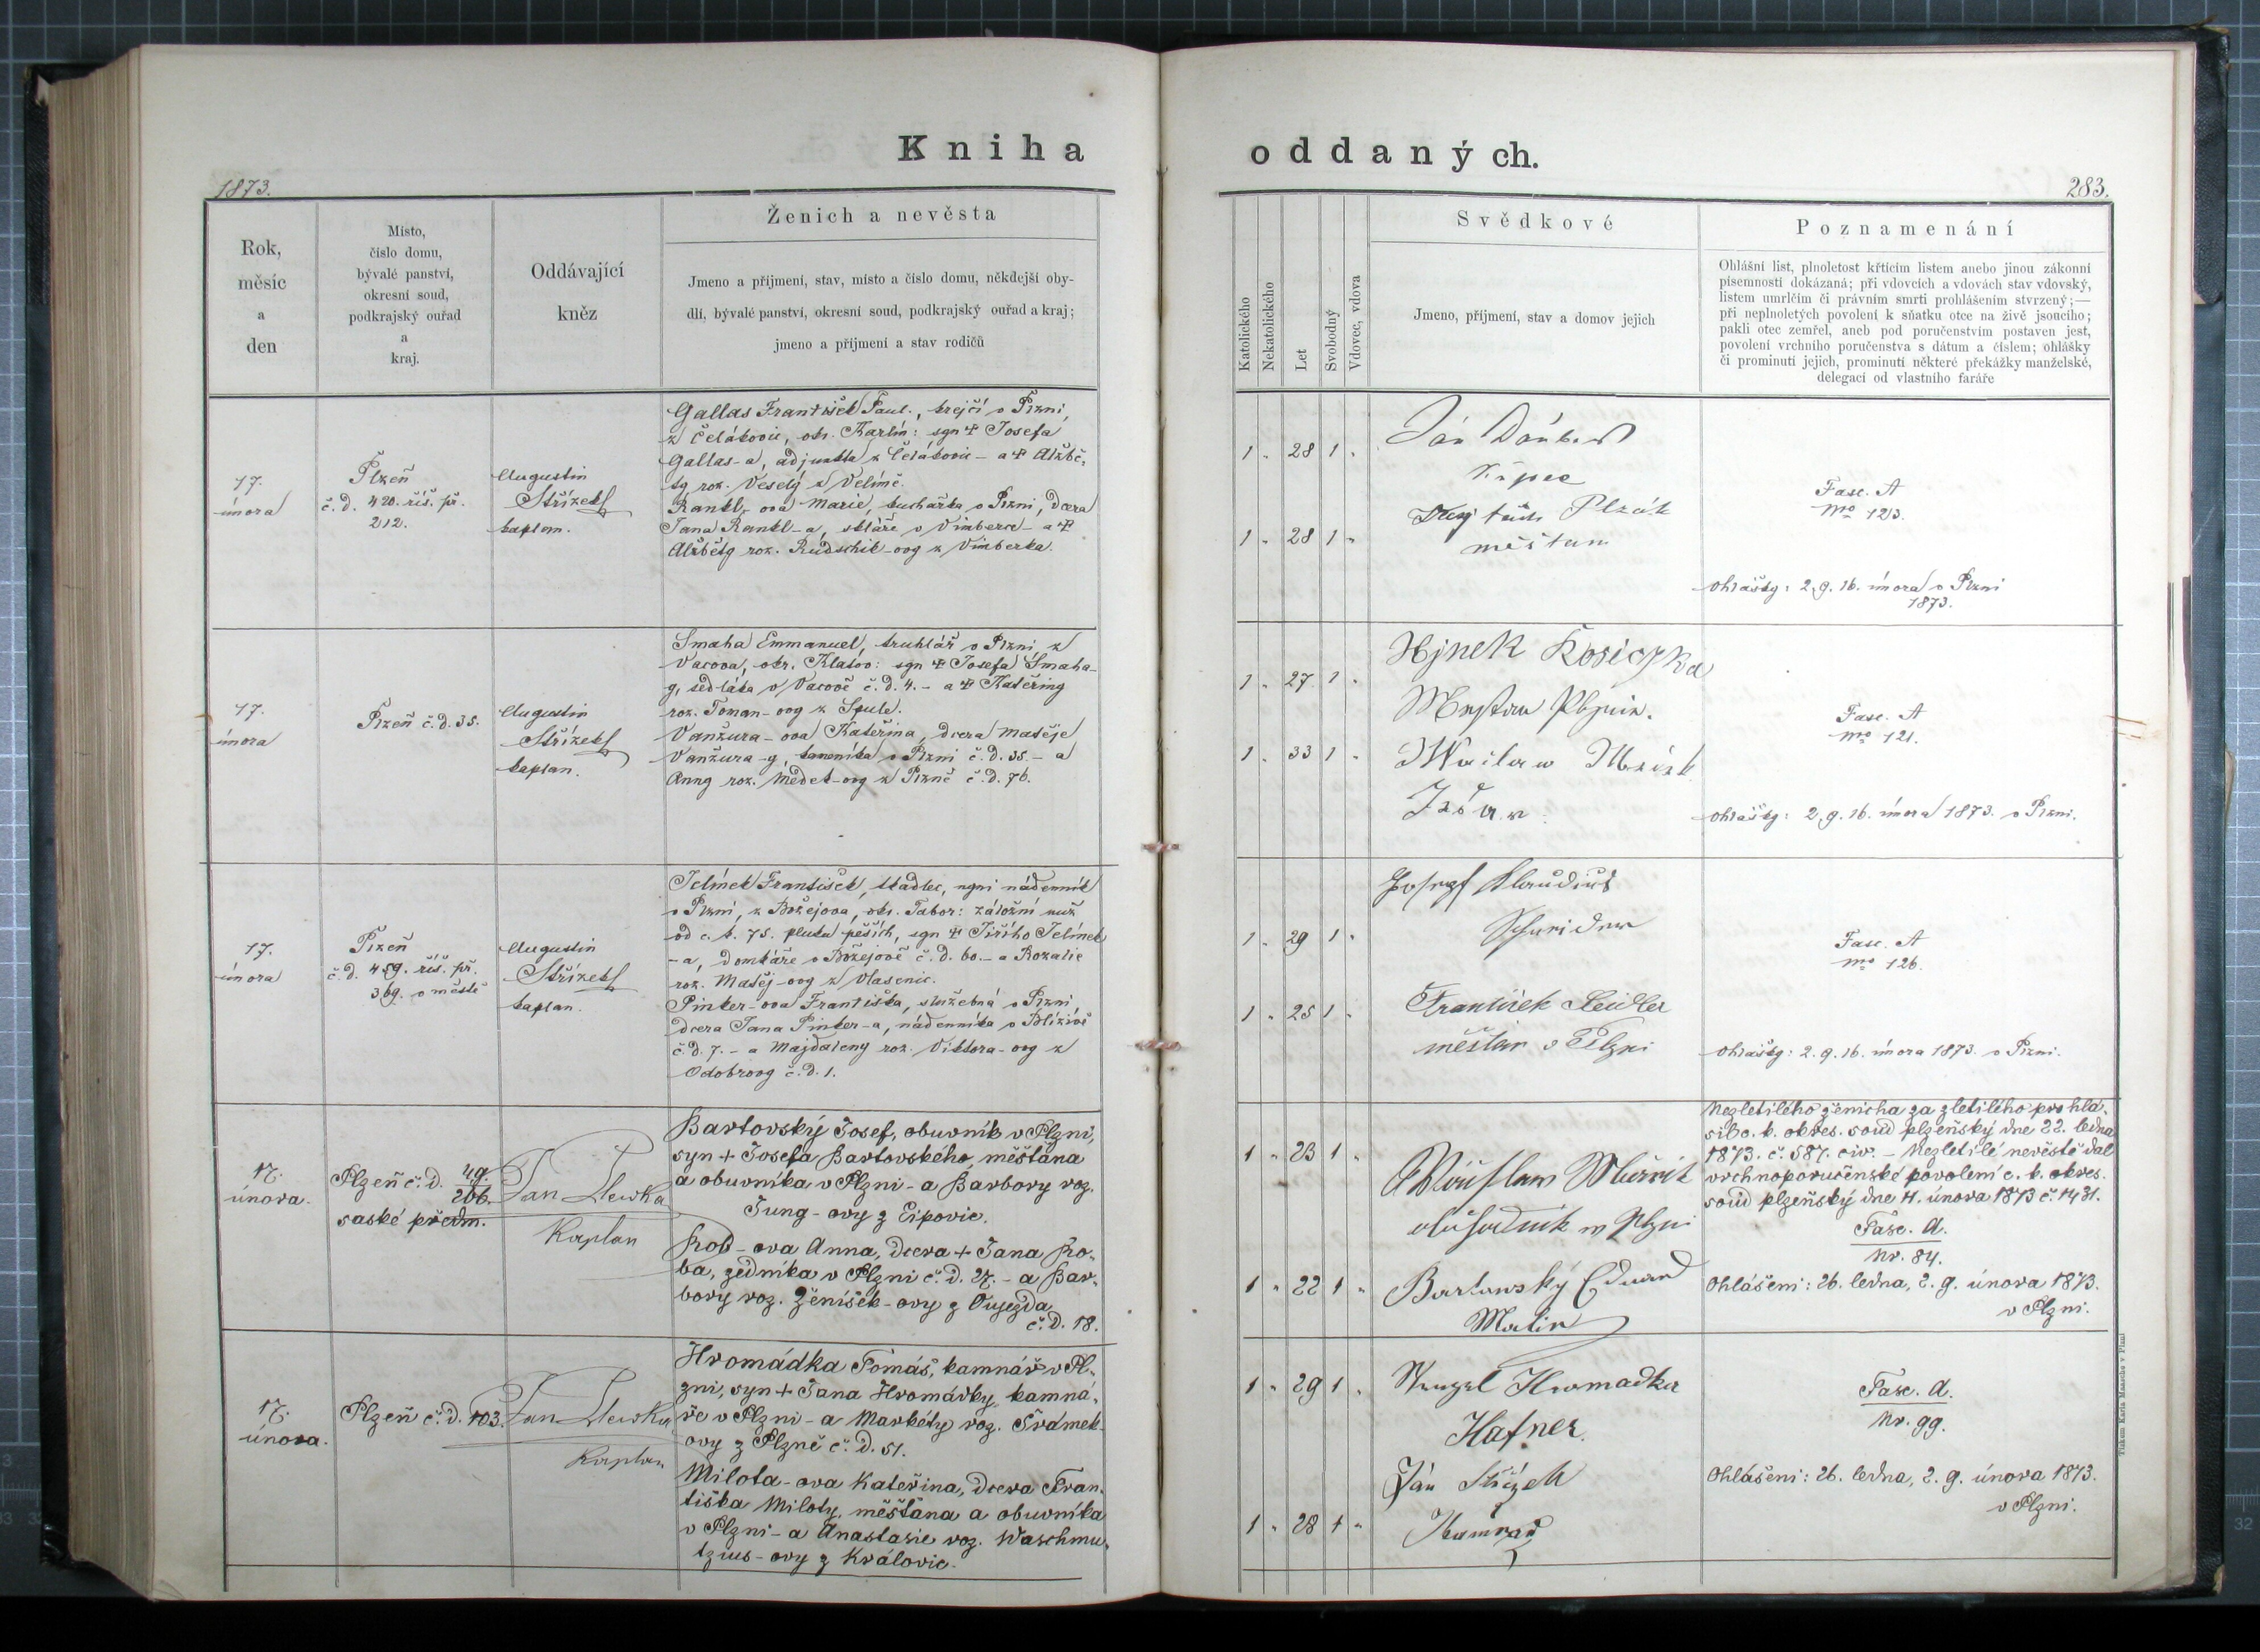 Kniha oddaných.
1873.
283.
Rok,
měsíc
a
den
Místo,
číslo domu,
bývalé panství,
okresní soud,
podkrajský ouřad
a
kraj.
Oddávající
kněz
Ženich a nevěsta
Jmeno a příjmení, stav, místo a číslo domu, někdejší oby-
dlí, bývalé panství, okresní soud, podkrajský ouřad a kraj;
jmeno a příjmení a stav rodičů
Katolického
Nekatolického
Let
Svobodný
Vdovec, vdova
Svědkové
Jmeno, příjmení, stav a domov jejich
Poznamenání
Ohlášní list, plnoletost křticím listem anebo jinou zákonní
písemností dokázaná; při vdovcích a vdovách stav vdovský,
listem umrlčím či právním smrti prohlášením stvrzený;—
při neplnoletých povolení k sňatku otce na živě jsoucího;
pakli otec zemřel, aneb pod poručenstvím postaven jest,
povolení vrchního poručenstva s dátum a číslem; ohlášky
či prominutí jejich, prominutí některé překážky manželské,
delegací od vlastního faráře
17.
února
Plzeň
č. d. 420. říš. př.
212.
Augustin
Střízek
kaplan.
Gallas František Paul., krejčí v Plzni,
z Čelákovic, okr. Karlín: syn ☩ Josefa
Gallas-a, adjunkta z Čelákovic - a ☩ Alžbě-
ty roz. Veselý z Velímě.
Rankl-ova Marie, kuchařka v Plzni, dcera
Jana Rankl-a, skláře v Vimberce - a ☩
Alžběty roz. Rudschik-ovy z Vimberka.
1 „ 28 1 „
1 „ 28 1 „
Ján
Kupec
Plzák
měštan
Fasc. A
No 123.
Ohlášky: 2. 9. 16. února v Plzni
1873.
17.
února
Plzeň č. d. 35.
Augustin
Střízek
kaplan.
Smaha Emmanuel, truhlář v Plzni, z
Vacova, okr. Klatov: syn ☩ Josefa Smaha-
y, sedláka v Vacově č. d. 4. - a ☩ Kateřiny
roz. Toman-ovy z Spule.
Vanžura-ova Kateřina, dcera Matěje
Vanžura-y, kameníka v Plzni č. d. 35. - a
Anny roz. Medek-ovy z Plzně č. d. 76.
1 „ 27 1 „
1 „ 33 1 „
Hynek Kosiczka
Waclaw
Fasc. A
No 121.
Ohlášky: 2. 9. 16. února 1873. v Plzni.
17.
února
Plzeň
č. d. 459. říš. př.
369. v městě
Augustin
Střízek
kaplan.
Jelínek František, tkadlec, nyní nádenník
v Plzni, z Božejova, okr. Tabor: záložní muž
od c. k. 75. pluku pěších, syn ☩ Jiřího Jelínek
-a, domkáře v Božejově č. d. 60. - a Rozalie
roz. Matěj-ovy z Vlasenic.
Pinker-ova Františka, služebná v Plzni,
dcera Jana Pinker-a, nádenníka v Blížívě
č. d. 7. - a Majdaleny roz. Viktora-ovy z
Odobrovy č. d. 1.
1 „ 29 1 „
1 „ 25 1 „
Josef Klaudius
Schneider
František Seidler
měštan v Plzni
Fasc. A
No 126.
Ohlášky: 2. 9. 16. února 1873. v Plzni.
17.
února.
Plzeň č. d. 49./266.
saské předm.
Jan Slewka
Kaplan
Bartovský Josef, obuvník v Plzni,
syn + Josefa Bartovského, měštana
a obuvníka v Plzni - a Barbory roz.
Jung-ovy z Eipovic.
Rob-ova Anna, dcera + Jana Ro-
ba, zedníka v Plzni č. d. 27. - a Bar-
bory roz. Ženíšek-ovy z Oujezda
č. d. 18.
1 „ 23 1 „
1 „ 22 1 „
w Plzni
Bartowský Eduard
Nezletilého ženicha za zletilého prohlá-
sil c. k. okres. soud plzeňský dne 22. ledna
1873. č. 587. civ. - Nezletilé nevěstě dal
vrchnoporučenské povolení c. k. okres.
soud plzeňský dne 11. února 1873 č. 1431.
Fasc. A.
Nr. 84.
Ohlášeni: 26. ledna, 2. 9. února 1873.
v Plzni.
17.
února.
Plzeň č. d. 103.
Jan Slewka
Kaplan
Hromádka Tomáš, kamnář v Pl-
zni, syn + Jana Hromádky, kamná-
ře v Plzni - a Markéty roz. Šrámek-
ovy z Plzně č. d. 51.
Milota-ova Kateřina, dcera Fran-
tiška Miloty, měštana a obuvníka
v Plzni - a Anastasie roz. Waschmu-
tzius-ovy z Královic.
1 „ 29 1 „
1 „ 28 1 „
Wenzel Hromadka
Hafner
Ján
Fasc. A.
Nr. 99.
Ohlášeni: 26. ledna, 2. 9. února 1873.
v Plzni.
Tiskem Karla Maasche v Plzni